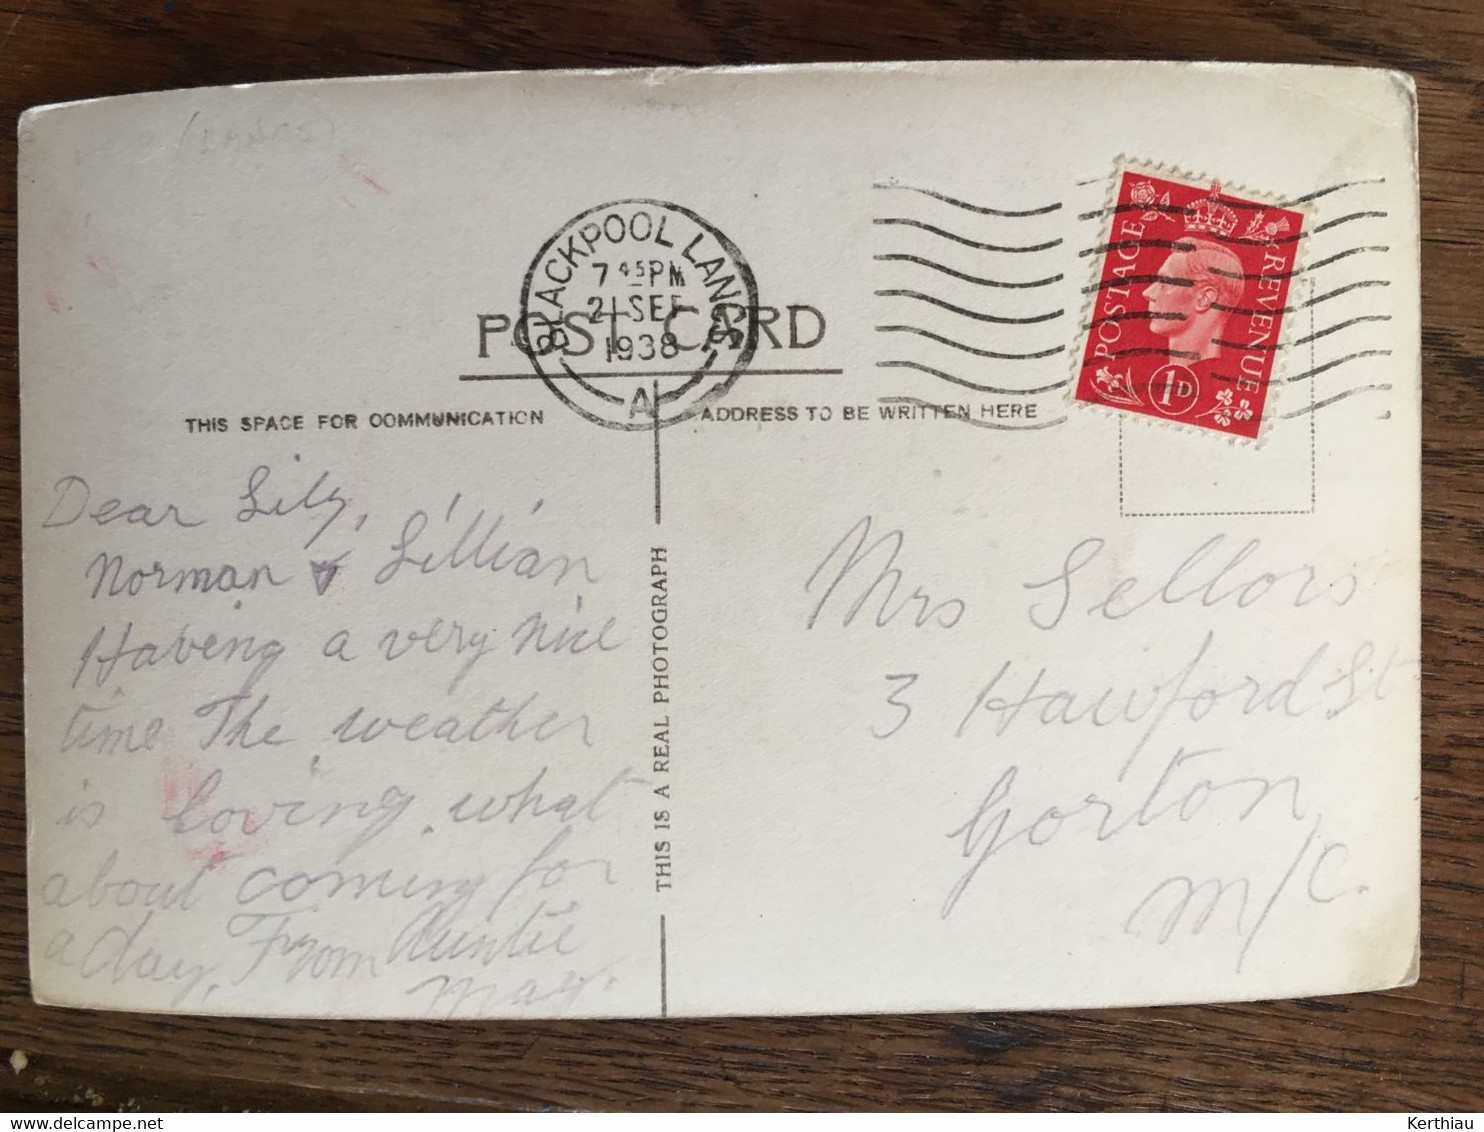 (LANCS)
BLACKPOOL LANCS
7 45 PM
21 SEP
1938
A
POSTAGE
REVENUE
1D
POST CARD
THIS SPACE FOR COMMUNICATION
ADDRESS TO BE WRITTEN HERE
Dear Lily,
Norman & Lillian
Having a very nice
time The weather
is loving what
about coming for
a day, From Auntie
May.
THIS IS A REAL PHOTOGRAPH
Mrs Sellors
3 Hawford St
Gorton
M/C.
Kerthiau